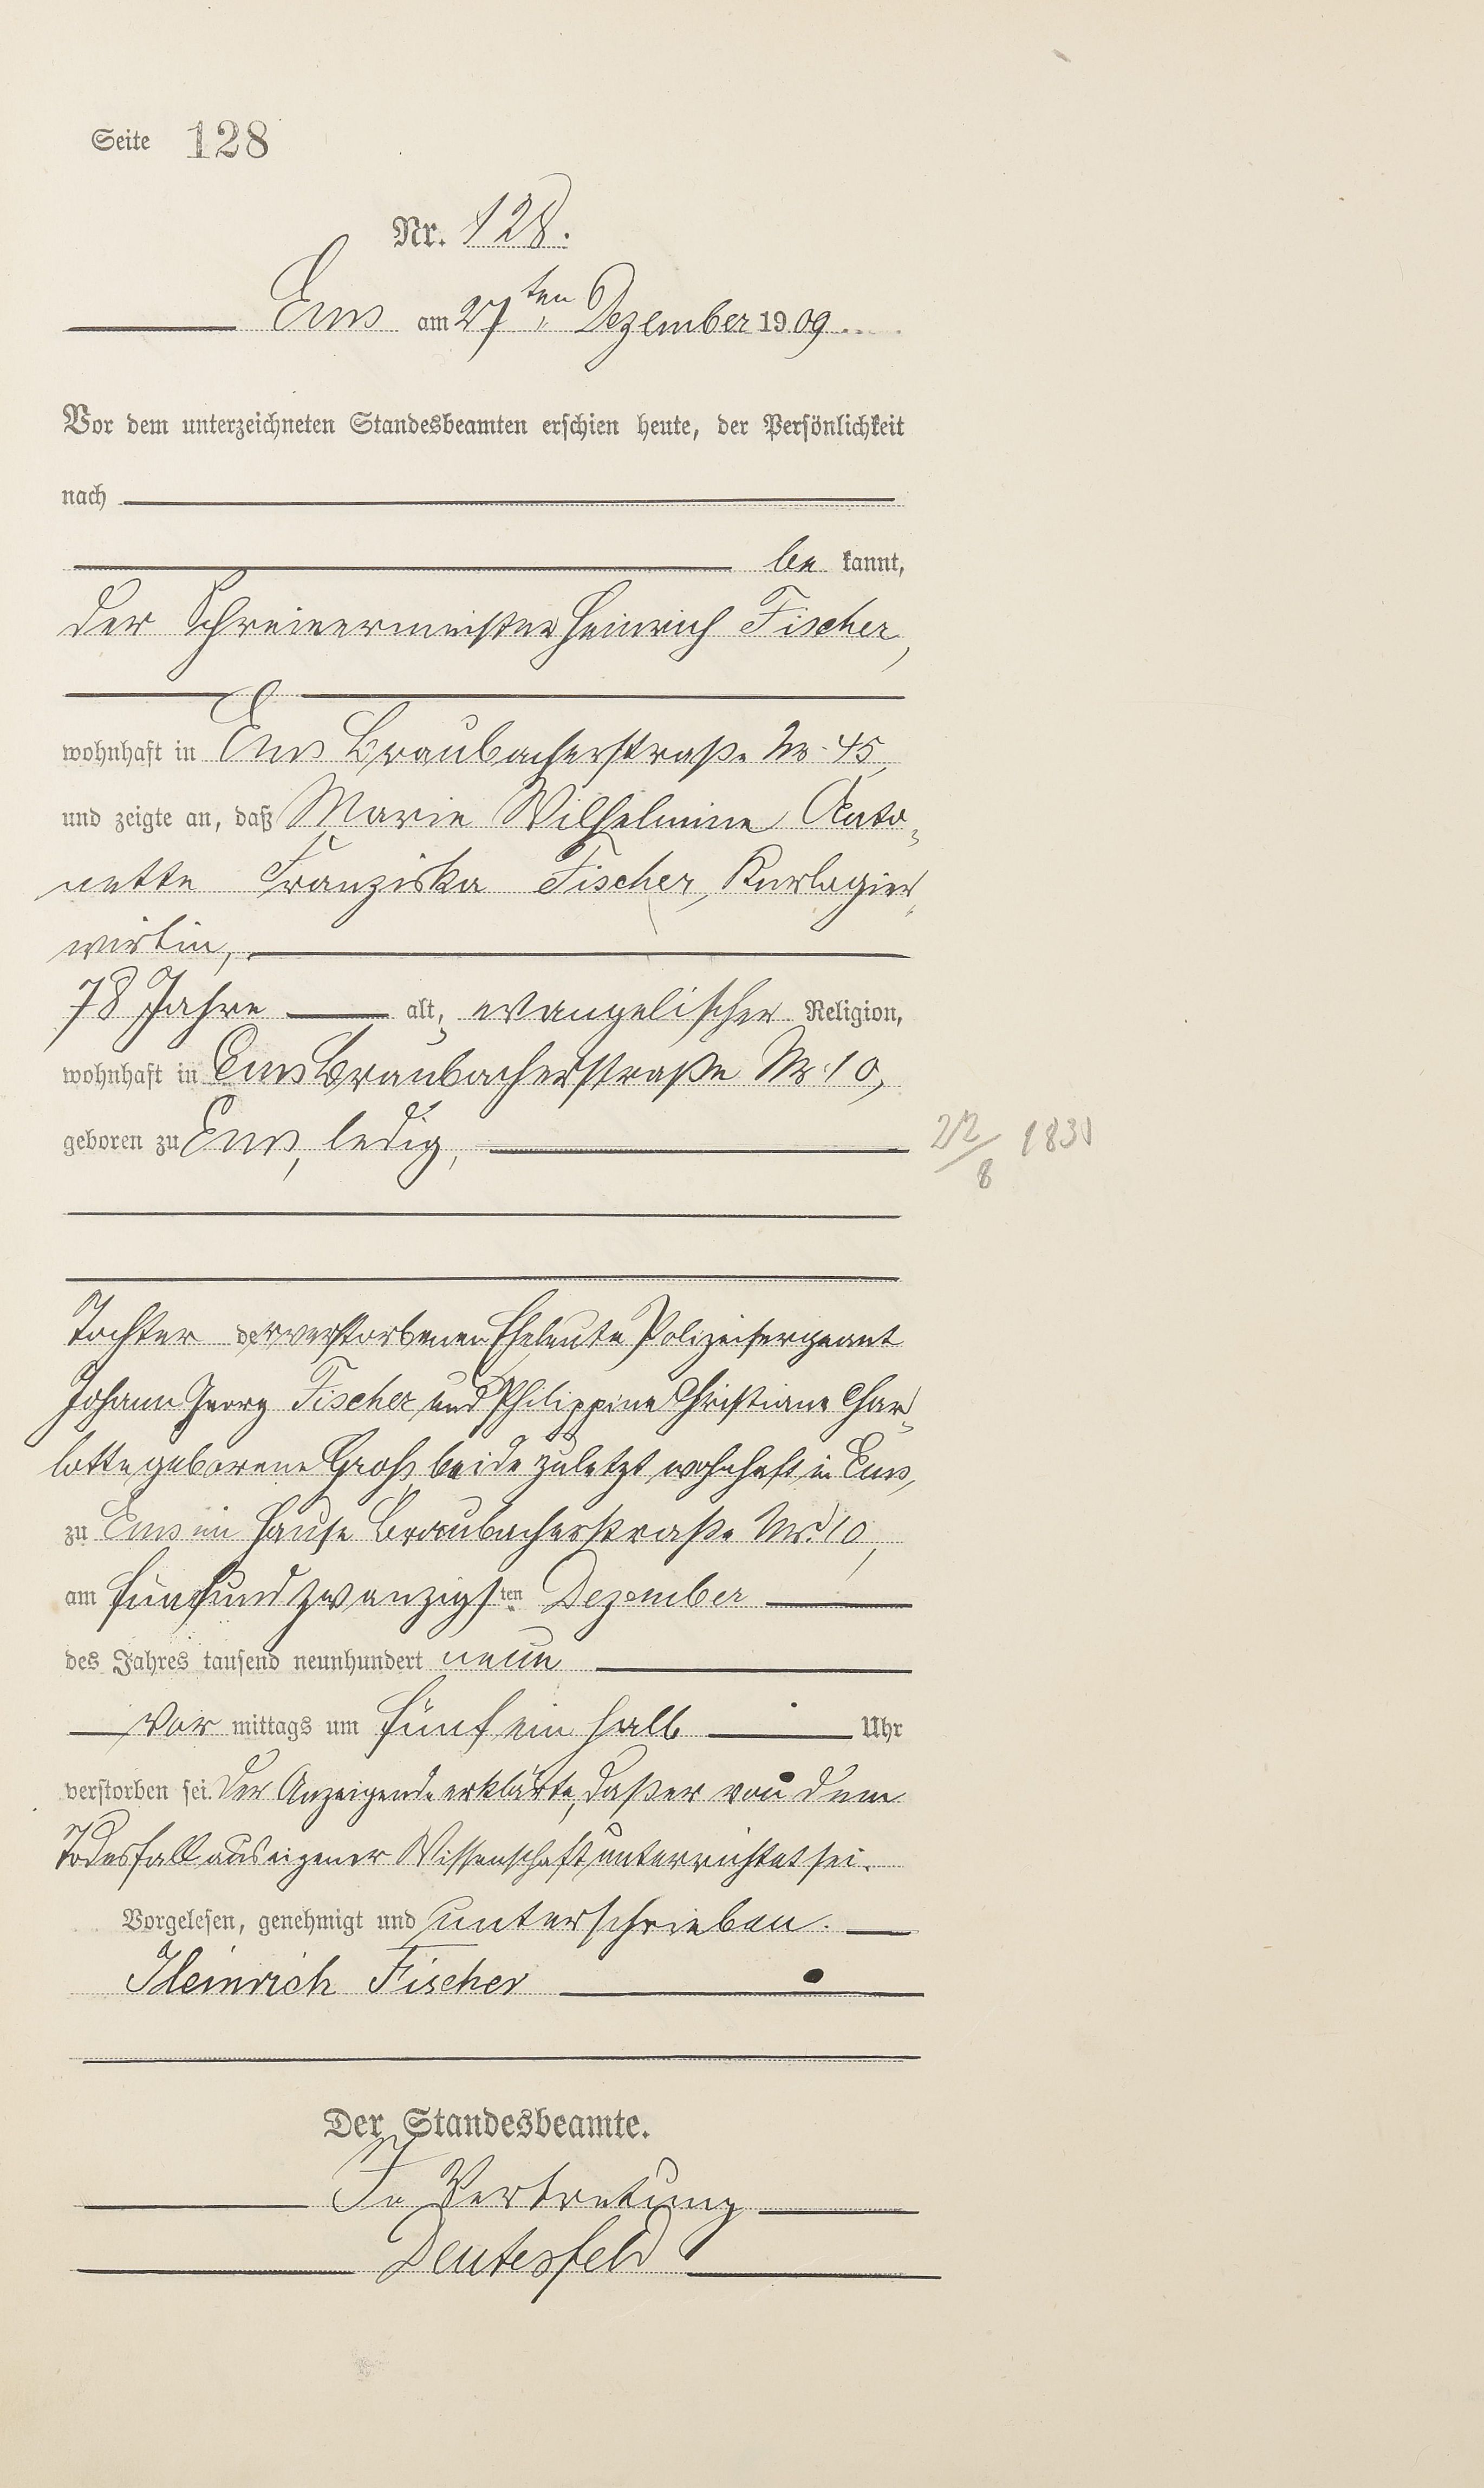 Seite 128
Nr. 128.
Ems am 27ten Dezember 1909
Vor dem unterzeichneten Standesbeamten erschien heute, der Persönlichkeit
nach
be kannt,
der Schreinermeister Heinrich Fischer,
wohnhaft in Ems Braubacherstraße Nr. 45,
und zeigte an, daß Marie Wilhelmine Anto-
nette Franziska Fischer, Kurlogier-
wirtin,
78 Jahre alt, evangelischer Religion,
wohnhaft in Ems Braubacherstraße Nr. 10,
geboren zu Ems, ledig,
22/8 1831
Tochter der verstorbenen Eheleute Polizeisergeant
Johann Georg Fischer und Philippine Christiane Char-
lotte geborene Groß, beide zuletzt wohnhaft in Ems,
zu Ems im Hause Braubacherstraße Nr. 10,
am fünfundzwanzigsten Dezember
des Jahres tausend neunhundert neun
vor mittags um fünf ein halb Uhr
verstorben sei. Der Anzeigende erklärte, daß er von dem
Todesfall aus eigener Wissenschaft unterrichtet sei.
Vorgelesen, genehmigt und unterschrieben.
Heinrich Fischer
Der Standesbeamte.
In Vertretung
Deutesfeld